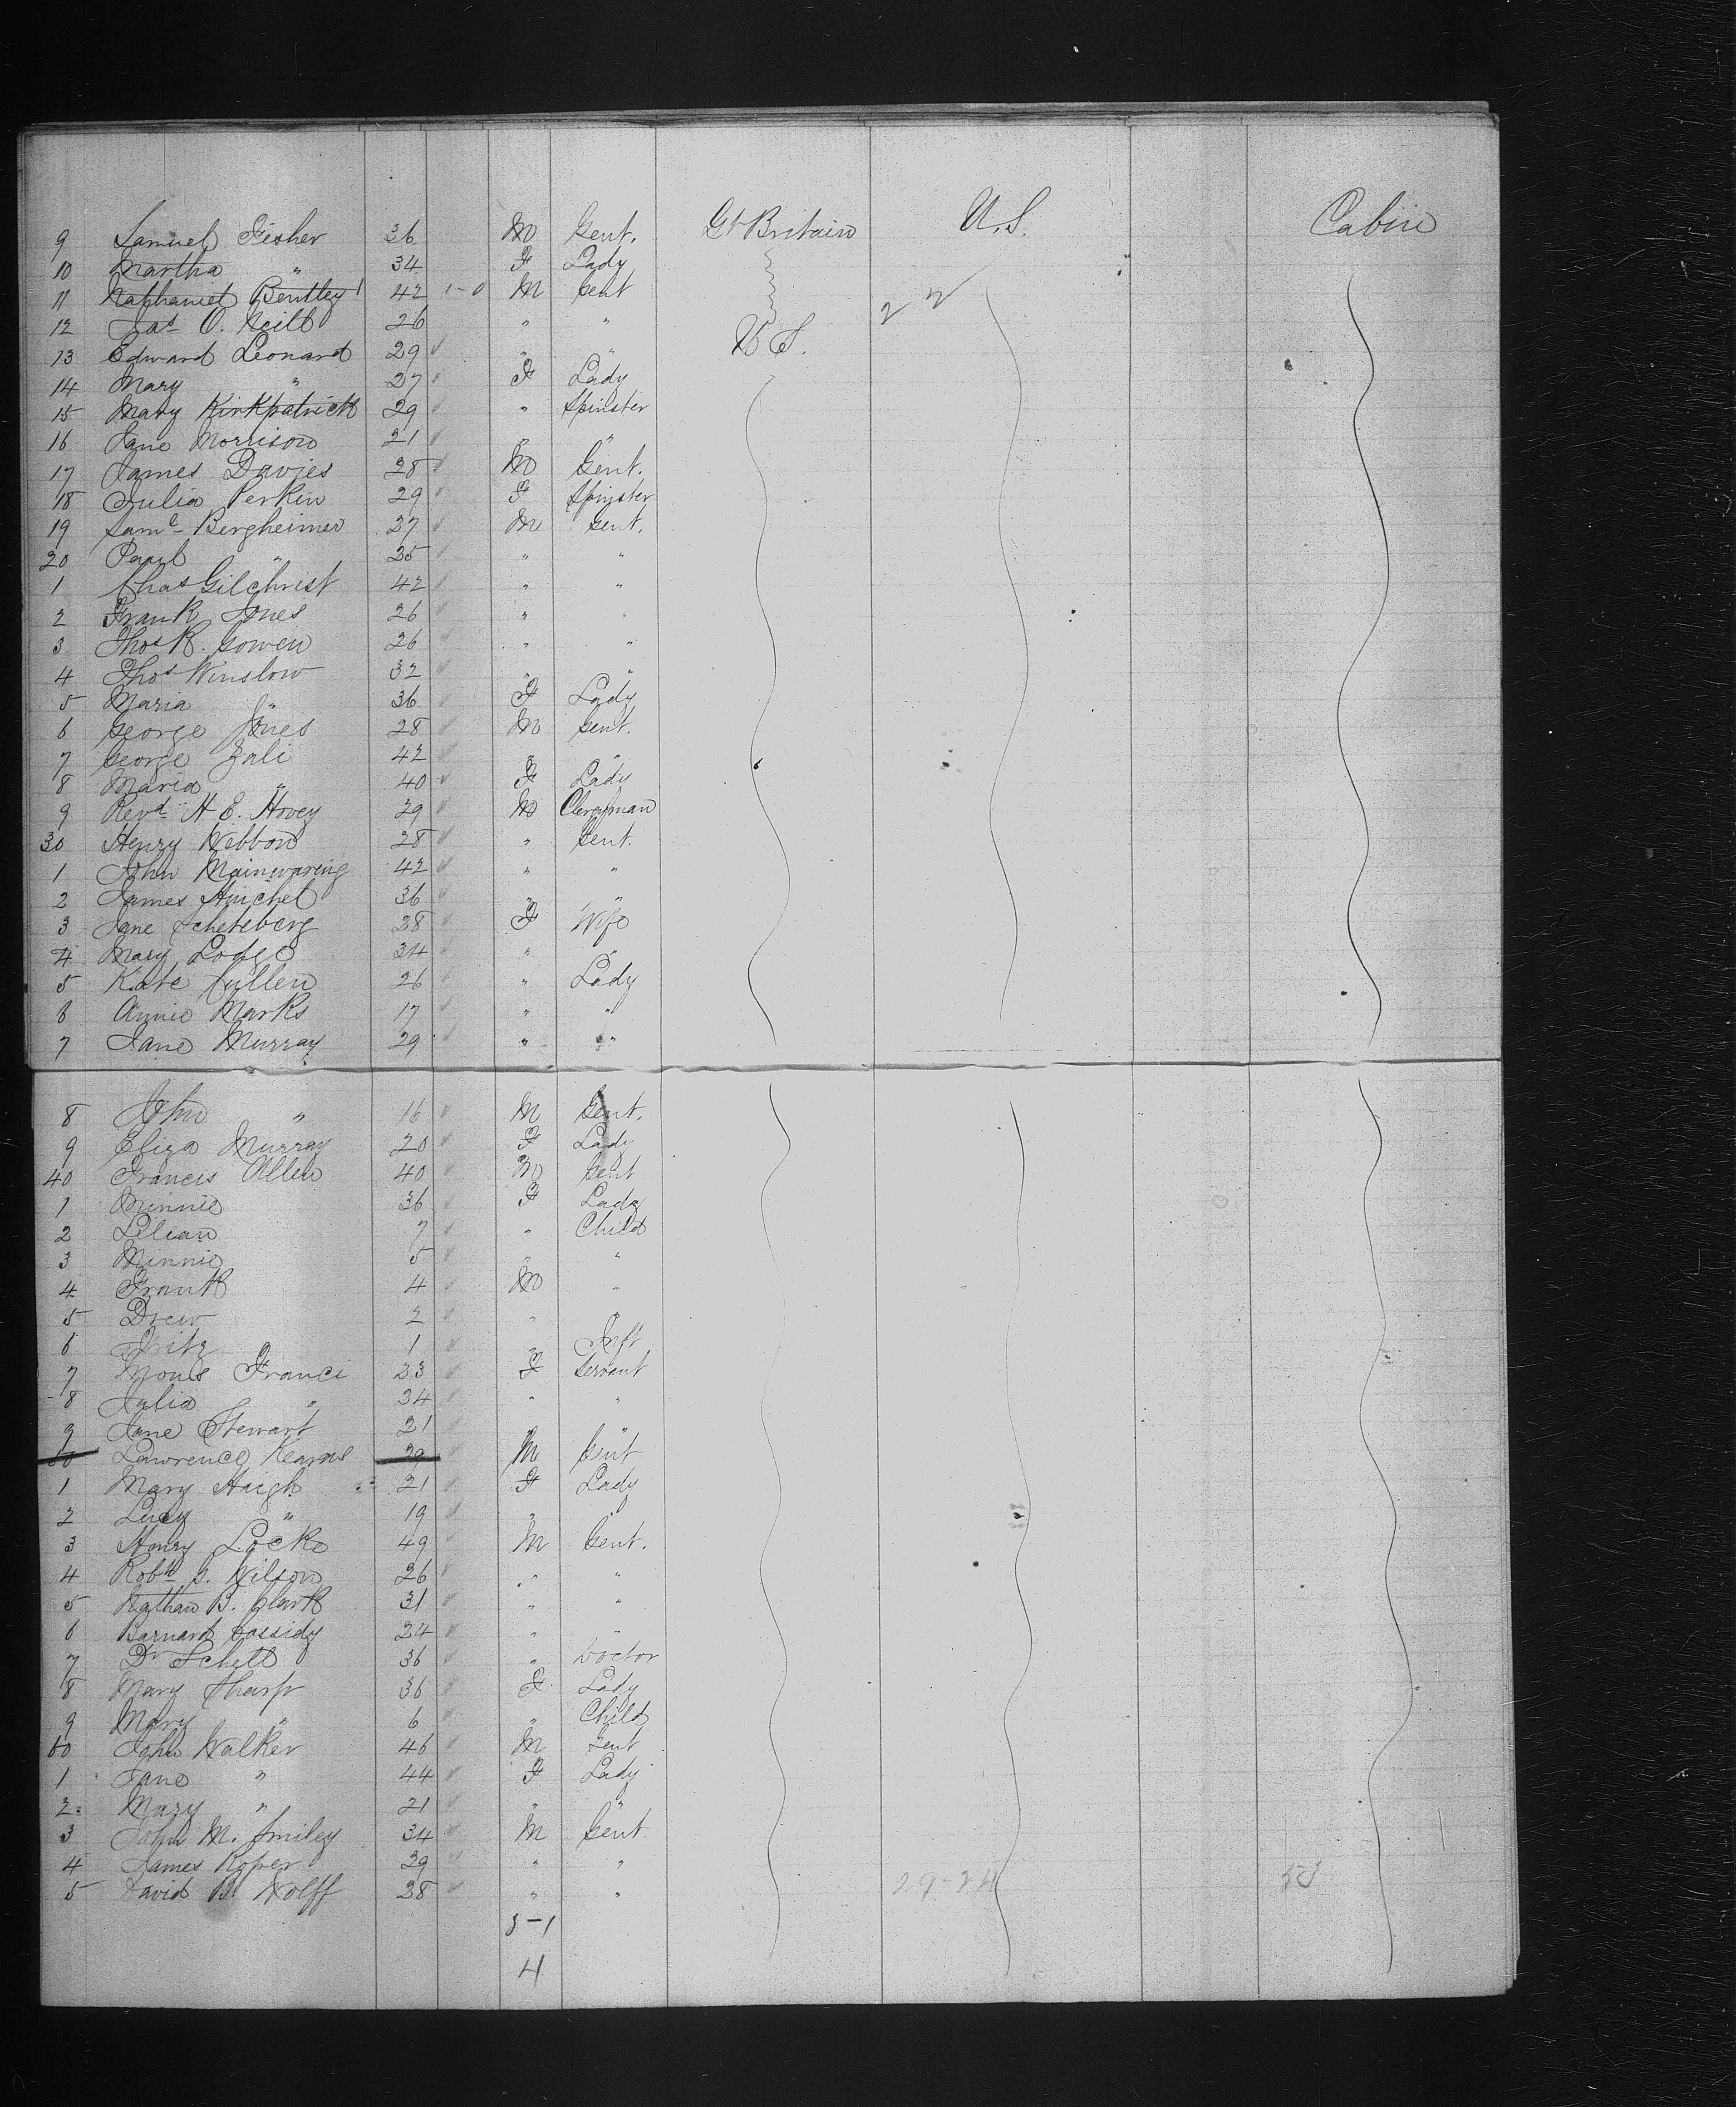 9 Samuel Fisher 36 M Gent. Gt Britain U.S. Cabin
10 Martha " 34 F Lady
11 Nathaniel Bentley 42 M Gent 22
12 Jas O. Neill 26 " "
13 Edward Leonard 29 " " U S.
14 Mary " 27 F Lady
15 Mary Kirkpatrick 29 " Spinster
16 Jane Morrison 21 " "
17 James Davies 28 M Gent.
18 Julia Perkin 29 F Spinster
19 Saml Bergheimer 37 M Gent.
20 Paul " 35 " "
1 Chas Gilchrist 42 " "
2 Frank Jones 26 " "
3 Thos R. Gowen 26 " "
4 Thos Winslow 32 " "
5 Maria " 36 F Lady
6 George Jones 28 M Gent.
7 George Zali 42 " "
8 Maria " 40 F Lady
9 Revd H E. Hovey 29 M Clergyman
30 Henry Webbon 28 " Gent.
1 John Mainwaring 42 " "
2 James 36 " "
3 Jane Scheteberg 28 F Wife
4 Mary Lodge 34 " "
5 Kate Cullen 26 " Lady
6 Annie Marks 17 " "
7 Jane Murray 29 " "
8 John " 16 M Gent.
9 Eliza Murray 20 F Lady
40 Francis Allen 40 M Gent
1 Minnie 36 F Lady
2 Lilian 7 " Child
3 Minnie 5 " "
4 Frank 4 M "
5 Drew 2 " "
6 Fritz 1 " Inft
7 Franci 23 F Servant
8 Julia " 34 " "
9 Jane Stewart 21 " "
50 Lawrence Kearns 39 M Gent
1 Mary Haigh 21 F Lady
2 Lucy " 19 " "
3 Henry Locke 49 M Gent.
4 Robt S. Wilson 26 " "
5 Nathan B. Clark 31 " "
6 Barnard Cassidy 24 " "
7 Dr Schell 36 " Doctor
8 Mary Sharp 36 F Lady
9 Mary " 6 " Child
60 John Walker 46 M Gent
1 Jane " 44 F Lady
2 Mary " 21 " "
3 John M. Smiley 34 M Gent
4 James Roper 39 " "
5 David B. Wolff 38 " " 29-24
4